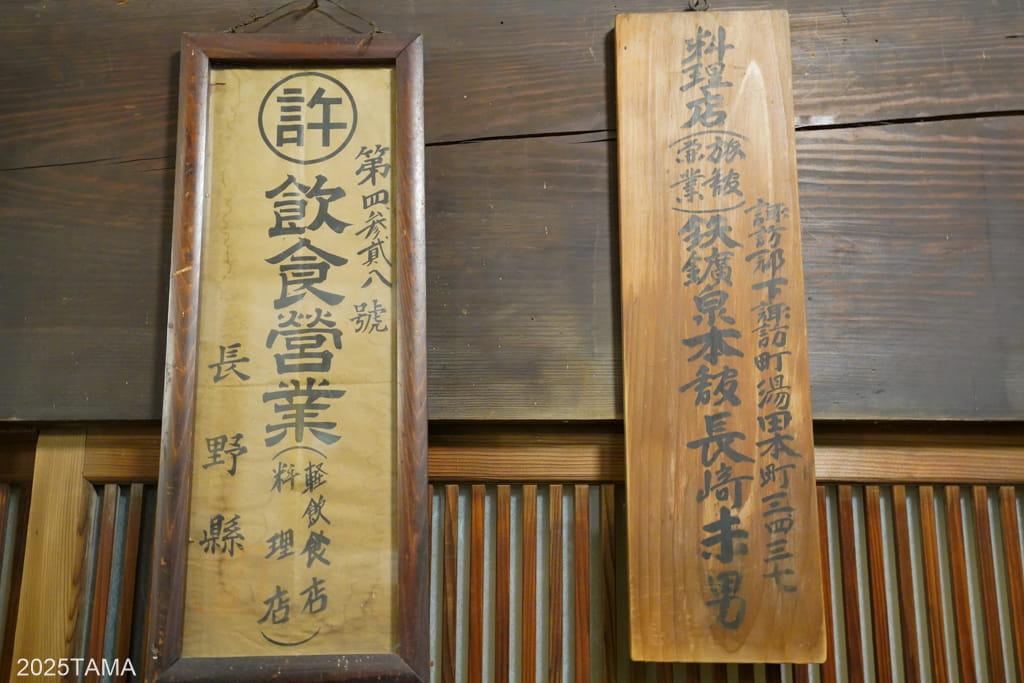 許
第四参貳八號
飲食營業
(軽飲食店
料理店)
長野縣
諏訪郡下諏訪町湯田本町三四三七
料理店(旅舘営業)鉄鑛泉本舘長崎末男
2025TAMA